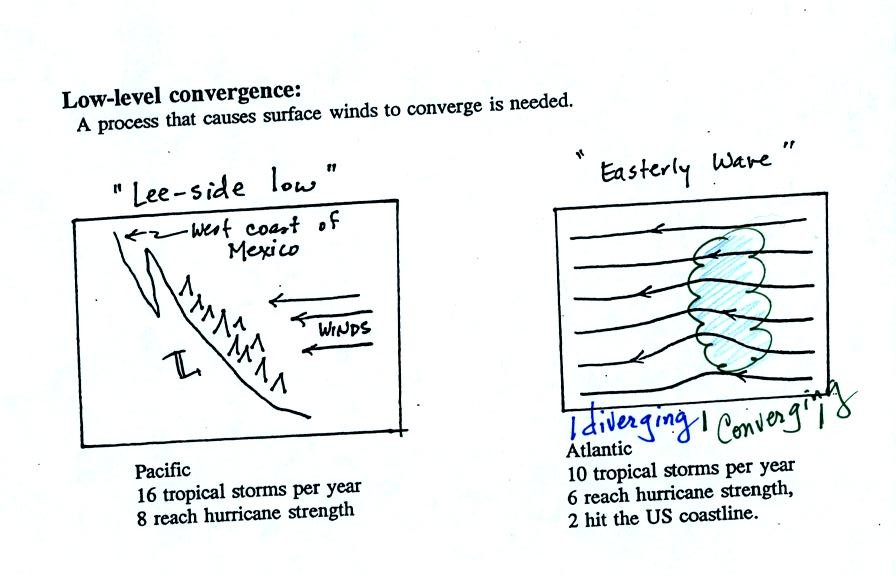 Low-level convergence:
A process that causes surface winds to converge is needed.
"Lee-side low"
West coast of
Mexico
WINDS
L
Pacific
16 tropical storms per year
8 reach hurricane strength
"Easterly Wave"
diverging Converging
Atlantic
10 tropical storms per year
6 reach hurricane strength,
2 hit the US coastline.